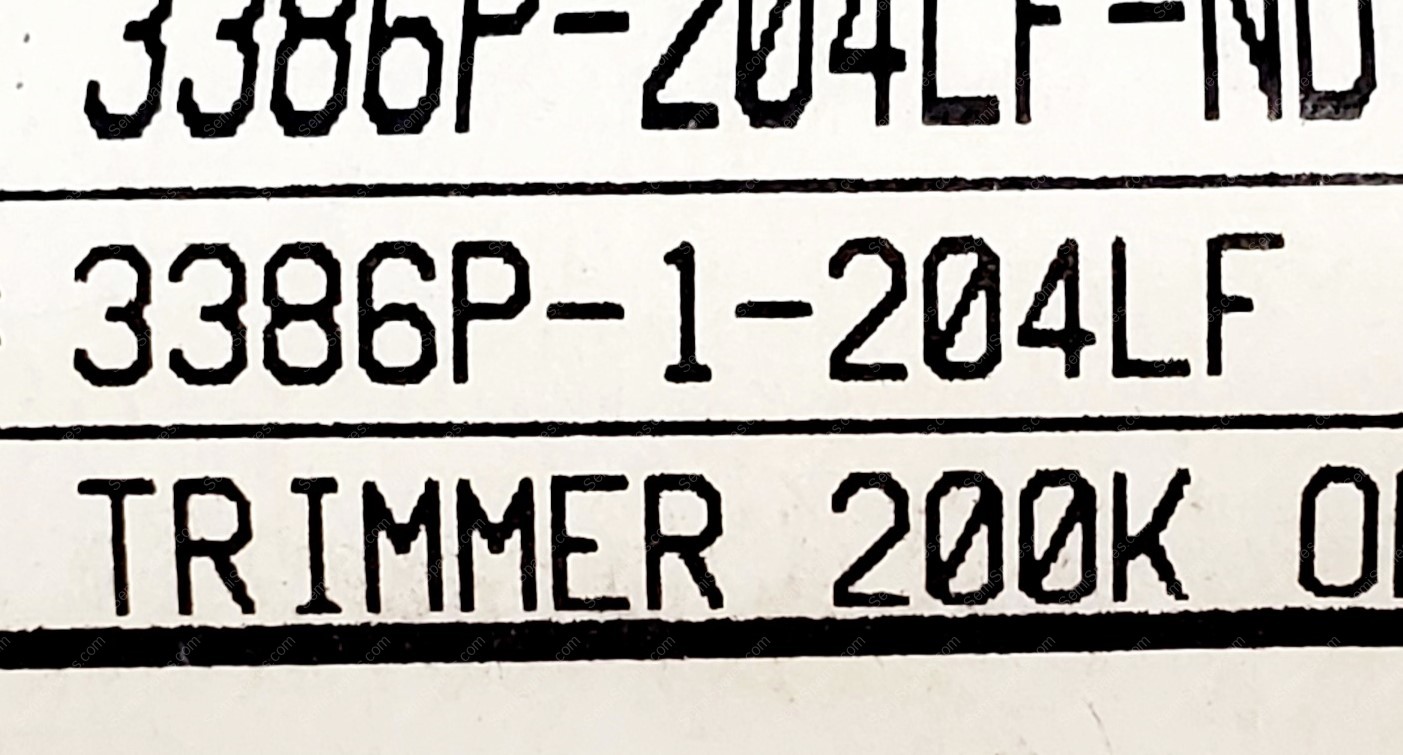 3386P-204LF-ND
3386P-1-204LF
TRIMMER 200K